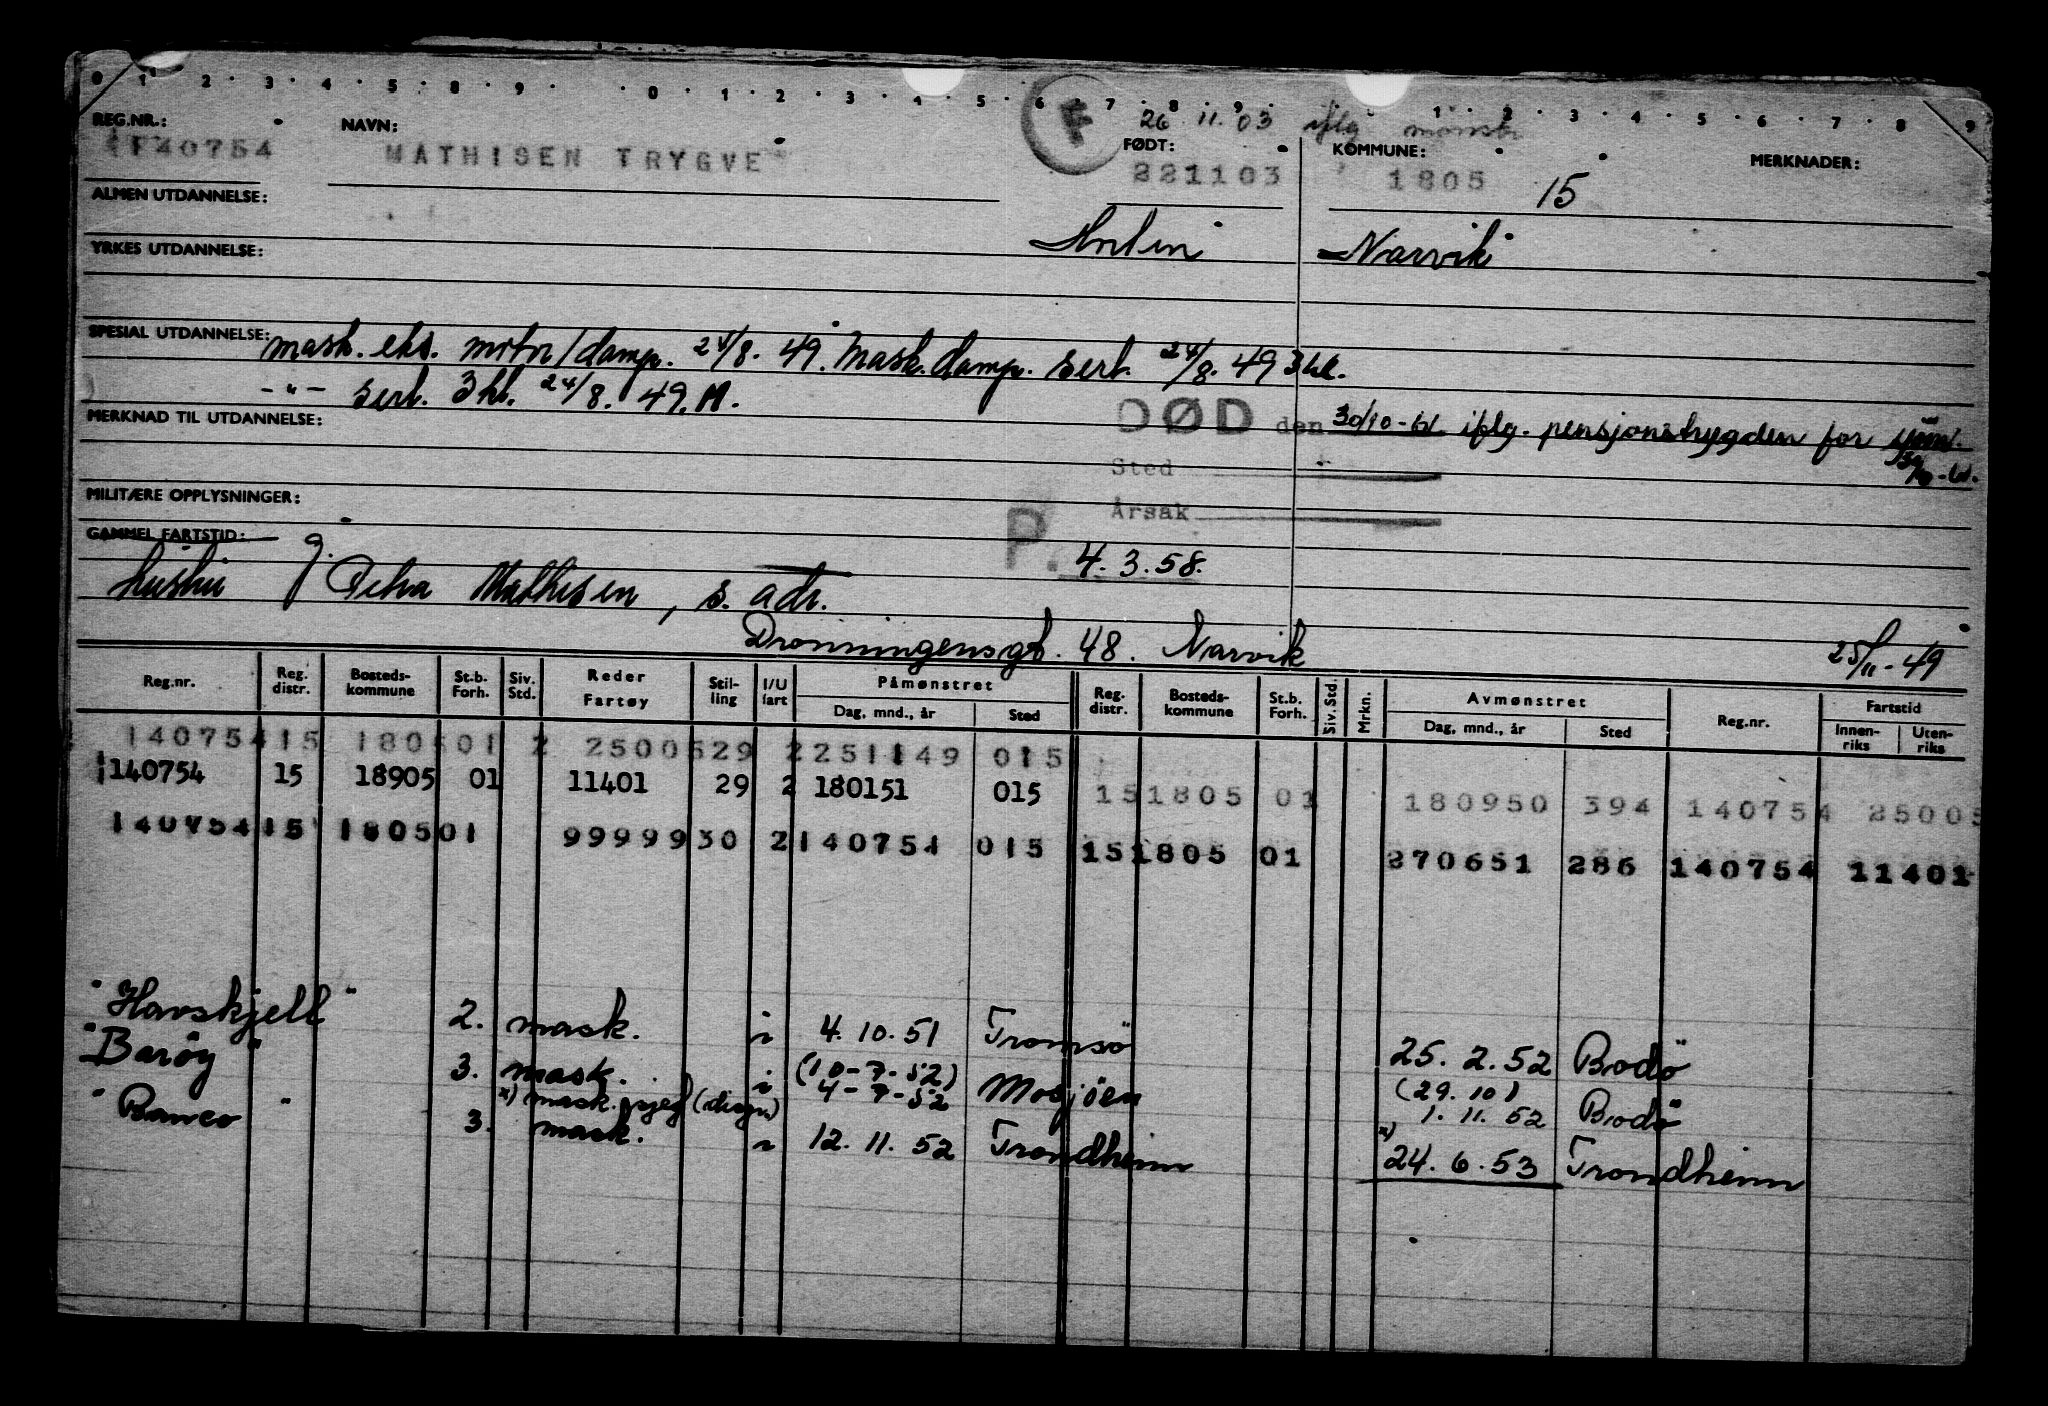 0 1 2 3 4 5 8 9 0 1 2 3 4 5 6 7 8 9 1 2 3 4 5 6 7 8 9
F 26 11.03 iflg mønstr
REG.NR.: NAVN: FØDT: KOMMUNE: MERKNADER:
140754 MATHISEN TRYGVE 221103 1805 15
ALMEN UTDANNELSE:
YRKES UTDANNELSE: Narvik
SPESIAL UTDANNELSE: mask. eks. motor/damp. 24/8. 49. Mask. damp. sert. 24/8. 49 3 kl.
-"- sert. 3 kl. 24/8. 49. M.
MERKNAD TIL UTDANNELSE: DØD den 30/10-61 iflg. pensjonstrygden for sjøm.
Sted
MILITÆRE OPPLYSNINGER: Årsak
GAMMEL FARTSTID: P. 4.3.58.
hustru g. Petra Mathisen, s. adr.
Dronningensgt. 48. Narvik 25/11-49
Reg.nr. Reg. distr. Bosteds-kommune St.b. Forh. Siv. Std. Reder Fartøy Stil-ling I/U fart Påmønstret Dag, mnd., år Sted Reg. distr. Bosteds-kommune St.b. Forh. Siv. Std. Mrkn. Avmønstret Dag, mnd., år Sted Reg.nr. Fartstid Innen-riks Uten-riks
140754 15 1805 01 2 25005 29 2 251149 015
140754 15 18905 01 11401 29 2 180151 015 15 1805 01 180950 394 140754 25005
140754 15 1805 01 99999 30 2 140751 015 15 1805 01 270651 286 140754 11401
"Havskjell" 2. mask. i 4.10.51 Tromsö 25.2.52 Bodö
"Barøy" 3. mask. i (10-7-52) 4-7-52 Mosjöen (29.10) 1.11.52 Bodö
x) mask.
"Ranco" 3. mask. i 12.11.52 Trondheim x) 24.6.53 Trondheim